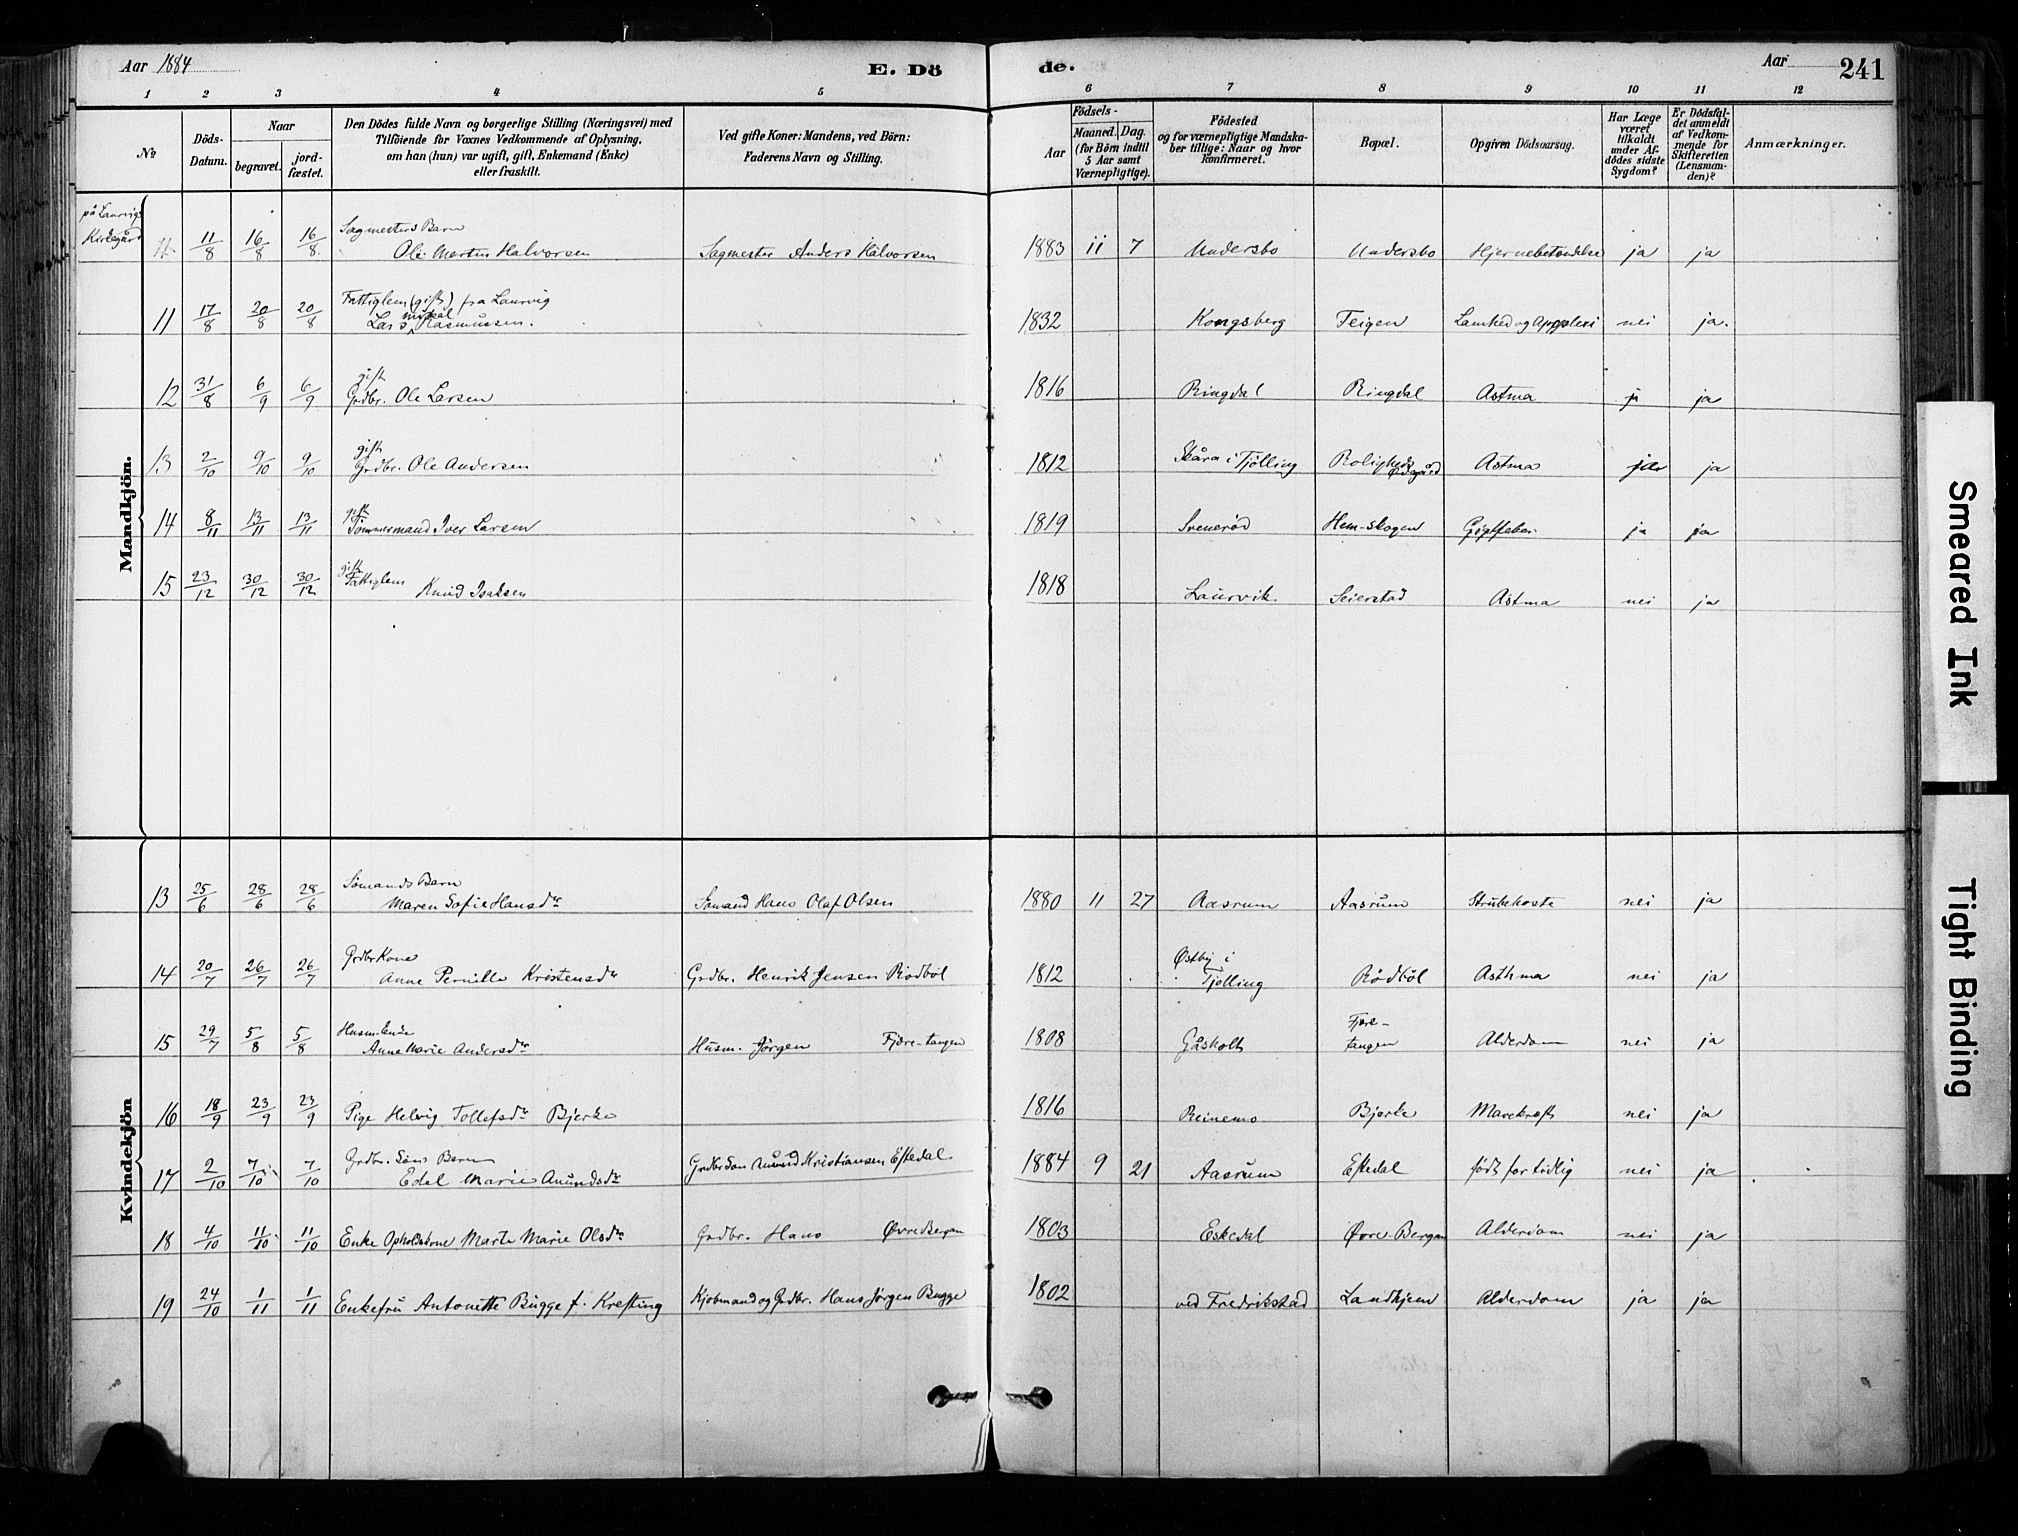 Aar 1884
E. Dö
de.
Aar
241
1 2 3 4 5 6 7 8 9 10 11 12
№
Döds-
Datum.
Naar
begravet.
jord-
fæstet.
Den Dödes fulde Navn og borgerlige Stilling (Næringsvei) med
Tilföiende for Voxnes Vedkommende af Oplysning,
om han (hun) var ugift, gift, Enkemand (Enke)
eller fraskilt.
Ved gifte Koner: Mandens, ved Börn:
Faderens Navn og Stilling.
Födsels-
Aar
Maaned. Dag.
(for Börn indtil
5 Aar samt
Værnepligtige).
Födested
og for værnepligtige Mandska-
ber tillige: Naar og hvor
konfirmeret.
Bopæl.
Opgiven Dödsaarsag.
Har Læge
været
tilkaldt
under Af-
dödes sidste
Sygdom?
Er Dödsfal-
det anmeldt
af Vedkom-
mende for
Skifteretten
(Lensman-
den)?
Anmærkninger.
Mandkjön.
på Laurvigs
Kirkegård
11/8 16/8 16/8 Sagmesters Barn
Ole Martin Halvorsen Sagmester Anders Halvorsen 1883 11 7 Undersbo Undersbo Hjernebetændelse ja ja
Fattiglem (gift) fra Laurvig
11 17/8 20/8 20/8 Lars Rasmussen. 1832 Kongsberg Feigen Lamhed og Apoplexi nei ja.
gift
12 31/8 6/9 6/9 Grdbr. Ole Larsen 1816 Ringdal Ringdal Astma ja
gift
13 2/10 9/10 9/10 Grdbr. Ole Andersen 1812 Skåra i Tjölling Roligheds Ødegård Astma ja ja
gift
14 8/11 13/11 13/11 Tömmermand Iver Larsen 1819 Svenerød Hem-skogen Gigtfeber ja ja
gift
15 23/12 30/12 30/12 Fattiglem Knud Isaksen 1818 Laurvik Seierstad Astma nei ja
Kvindekjön
Sömands Barn
13 25/6 28/6 28/6 Maren Sofie Hansdr Sömand Hans Olaf Olsen 1880 11 27 Aasrum Aasrum Strubehoste nei ja
Grdbr Kone
14 20/7 26/7 26/7 Anne Pernille Kristensdr Grdbr. Henrik Jensen Rödböl 1812 Østby i Tjölling Rödböl Asthma nei ja
Husm. Enke
15 29/7 5/8 5/8 Anne Marie Andersdr Husm. Jörgen Fjære-tangen 1808 Gåsholt Fjære-tangen Alderdom nei ja
16 18/9 23/9 23/9 Pige Helvig Tollefsdr Bjerke 1816 Reinemo Bjerke Marekraft nei ja
Grdbr. Söns Barn
17 2/10 7/10 7/10 Edel Marie Anundsdr Grdbr Sön Anund Kristiansen Eftedal 1884 9 21 Aasrum Eftedal födt for tidlig nei ja
18 4/10 11/10 11/10 Enke Opholdskone Marte Marie Olsdr Grdbr. Hans Øvre Bergan 1803 Eskedal Øvre-Bergan Alderdom nei ja
19 24/10 1/11 1/11 Enkefru Antonette Bugge f. Krefting Kjöbmand og Grdbr. Hans Jörgen Bugge 1802 ved Fredrikstad Landhjem Alderdom ja ja
Smeared Ink
Tight Binding